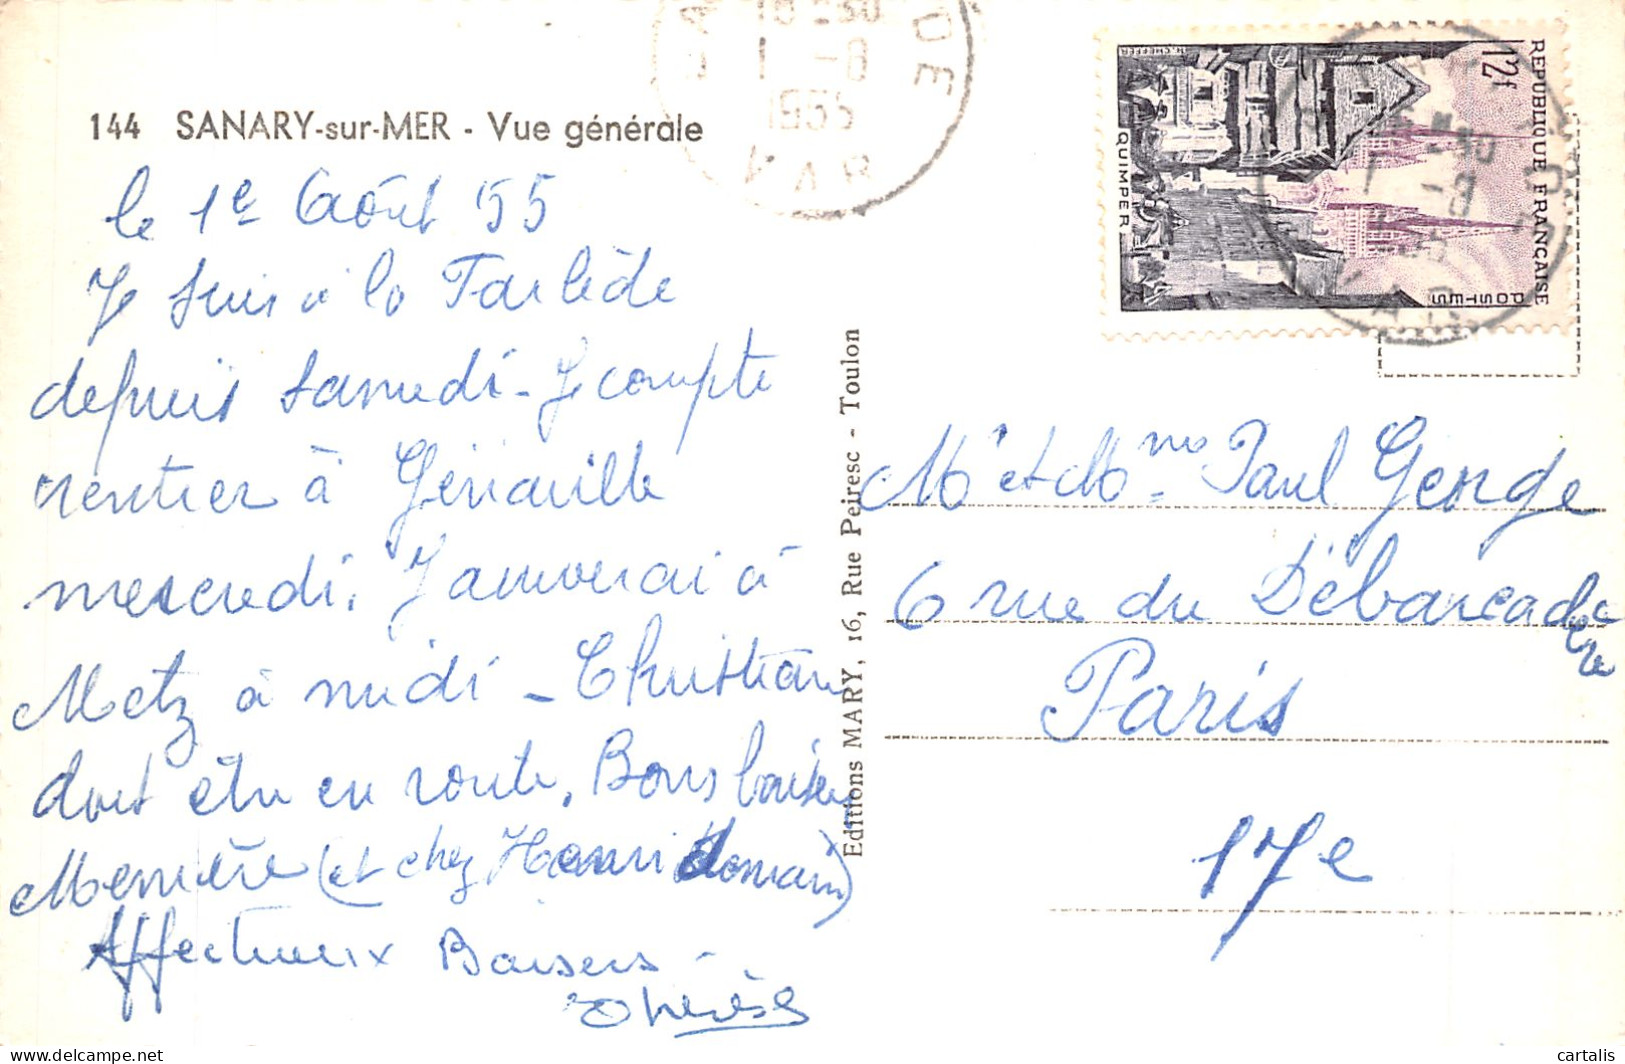 144 SANARY-sur-MER - Vue générale
le 1e Août 55
Je suis à la Farlède
depuis samedi - Je compte
rentrer à
mercredi. J'arriverai à
Metz à midi - Christian
doit être en route. Bons baisers
(et chez Henri demain)
Affectueux Baisers -
Thérèse
Editions MARY, 16, Rue Peiresc - Toulon
10-30
1 -8
1955
VAR
REPUBLIQUE FRANÇAISE
12f
POSTES
QUIMPER
H. CHEFFER
Mr et Mme Paul George
6 rue du Débarcadère
Paris
17e
cartalis
Delcampe.net